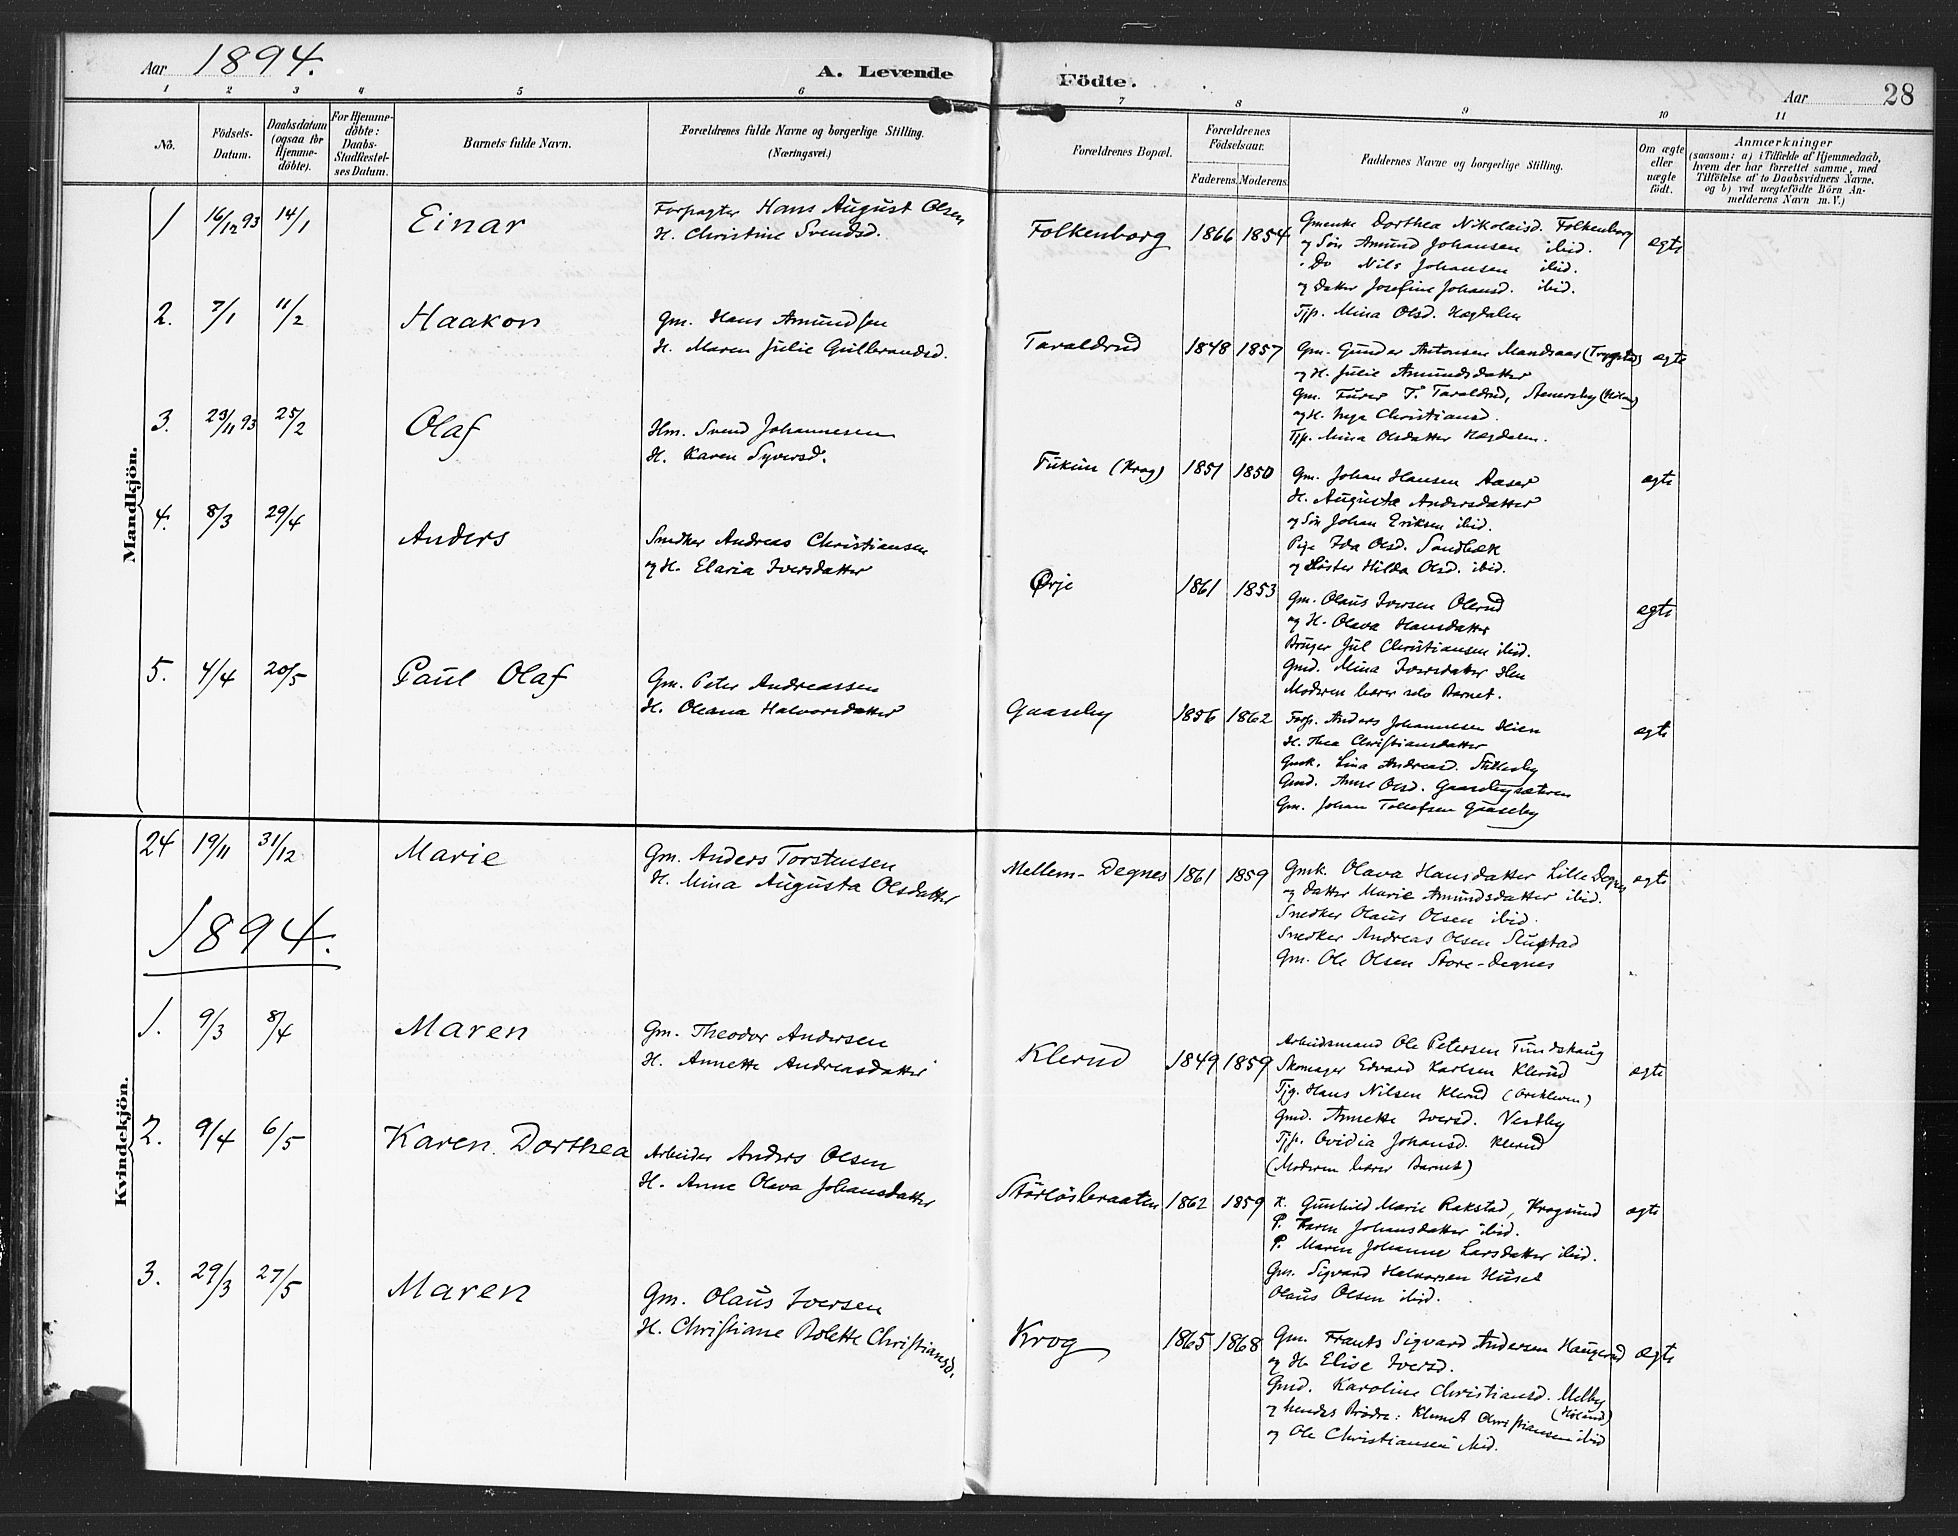 Aar 1894.
A. Levende Födte.
Aar 28
1 2 3 4 5 6 7 8 9 10 11
Nô. Födsels-Datum. Daabsdatum (ogsaa for Hjemmedöbte). For Hjemmedöbte: Daabs-Stadfæstelses Datum. Barnets fulde Navn. Forældrenes fulde Navne og borgerlige Stilling. (Næringsvei.) Forældrenes Bopæl. Forældrenes Födselsaar. Faderens. Moderens. Faddernes Navne og borgerlige Stilling. Om ægte eller uægte födt. Anmærkninger (saasom: a) i Tilfælde af Hjemmedaab, hvem der har forrettet samme, med Tilföielse af to Daabsvidners Navne, og b) ved uægtefödte Börn Anmelderens Navn m. V.)
Mandkjön.
1 16/12 93 14/1 Einar
Forpagter Hans August Olsen
H. Christine Svendsd.
Folkenborg 1866 1854
Gmenke Dorthea Nikolaisd. Folkenborg
og Sön Amund Johansen ibid.
Do Nils Johansen ibid.
og Datter Josefine Johansd. ibid.
Tjp. Mina Olsd. Hægdalen
ægte
2. 7/1 11/2 Haakon
Gm. Hans Amundsen
H. Maren Julie Gulbrandsd.
Taraldrud 1848 1857
Gm. Gunder Antonsen Mandsaas (Trygstad)
og H. Julie Amundsdatter
Gm. Furer T. Taraldrud, Stenersby (Höland)
og H. Inga Christiansd.
Tjp. Mina Olsdatter Hægdalen.
ægte
3. 23/11 93 25/2 Olaf
Hm. Svend Johannesen
H. Karen Syversd.
Tukun (Krog) 1851 1850
Gm. Johan Hansen Aaser
H. Augusta Andersdatter
og Sön Johan Eriksen ibid.
Pige Ida Olsd. Sandbæk
og Söster Hilda Olsd. ibid.
ægte
4. 8/3 29/4 Anders
Snedker Andreas Christiansen
og H. Elaria Iversdatter
Ørje 1861 1853
Gm. Olaus Iversen Olerud
og H. Olava Hansdatter
Bruger Jul Christiansen ibid.
Gmd. Mina Iversdatter Hen
Moderen bærer selv Barnet.
ægte
5. 4/4 20/5 Paul Olaf
Gm. Peter Andreassen
H. Oleana Halvorsdatter
Gaaseby 1856 1862
Forp. Anders Johannesen Hien
H. Thea Christiansdatter
Gmk. Lina Andreasd. Stikkesby
Gmd. Anne Olsd. Gaasebysæteren
Gm. Johan Tollefsen Gaaseby
ægte
Kvindekjön.
24 19/11 31/12 Marie
Gm. Anders Torstensen
H. Mina Augusta Olsdatter
Mellem-Degnes 1861 1859
Gmk. Olava Hansdatter Lille Degnes
og Datter Marie Amundsdatter ibid.
Snedker Olaus Olsen ibid.
Snedker Andreas Olsen Slupstad
Gm. Ole Olsen Store-Degnes
ægte
1894.
1. 9/3 8/4 Maren
Gm. Theodor Andersen
H. Annette Andreasdatter
Klerud 1849 1859
Arbeidsmand Ole Petersen Tundshaug
Skomager Edvard Karlsen Klerud
Tjg. Hans Nilsen Klerud
Gmd. Annette Iversd. Vestby
Tjp. Ovidia Johansd. Klerud
(Moderen bærer Barnet)
ægte
2. 9/4 6/5 Karen Dorthea
Arbeider Anders Olsen
H. Anne Olava Johansdatter
Störlösbraaten 1862 1859
K. Gunhild Marie Rakstad, Krogsund
P. Karen Johansdatter ibid.
P. Maren Johanne Larsdatter ibid.
Gm. Sigvard Halvorsen Huset
Olaus Olsen ibid.
ægte
3. 29/3 27/5 Maren
Gm. Olaus Iversen
H. Christiane Bolette Christiansd.
Krog 1865 1868
Gm. Frants Sigvard Andersen Haugerud
og H. Elise Iversd.
Gmd. Karoline Christiansd. Melby (Höland)
og hendes Brödre: Klemet Christiansen ibid
og Ole Christiansen ibid.
ægte